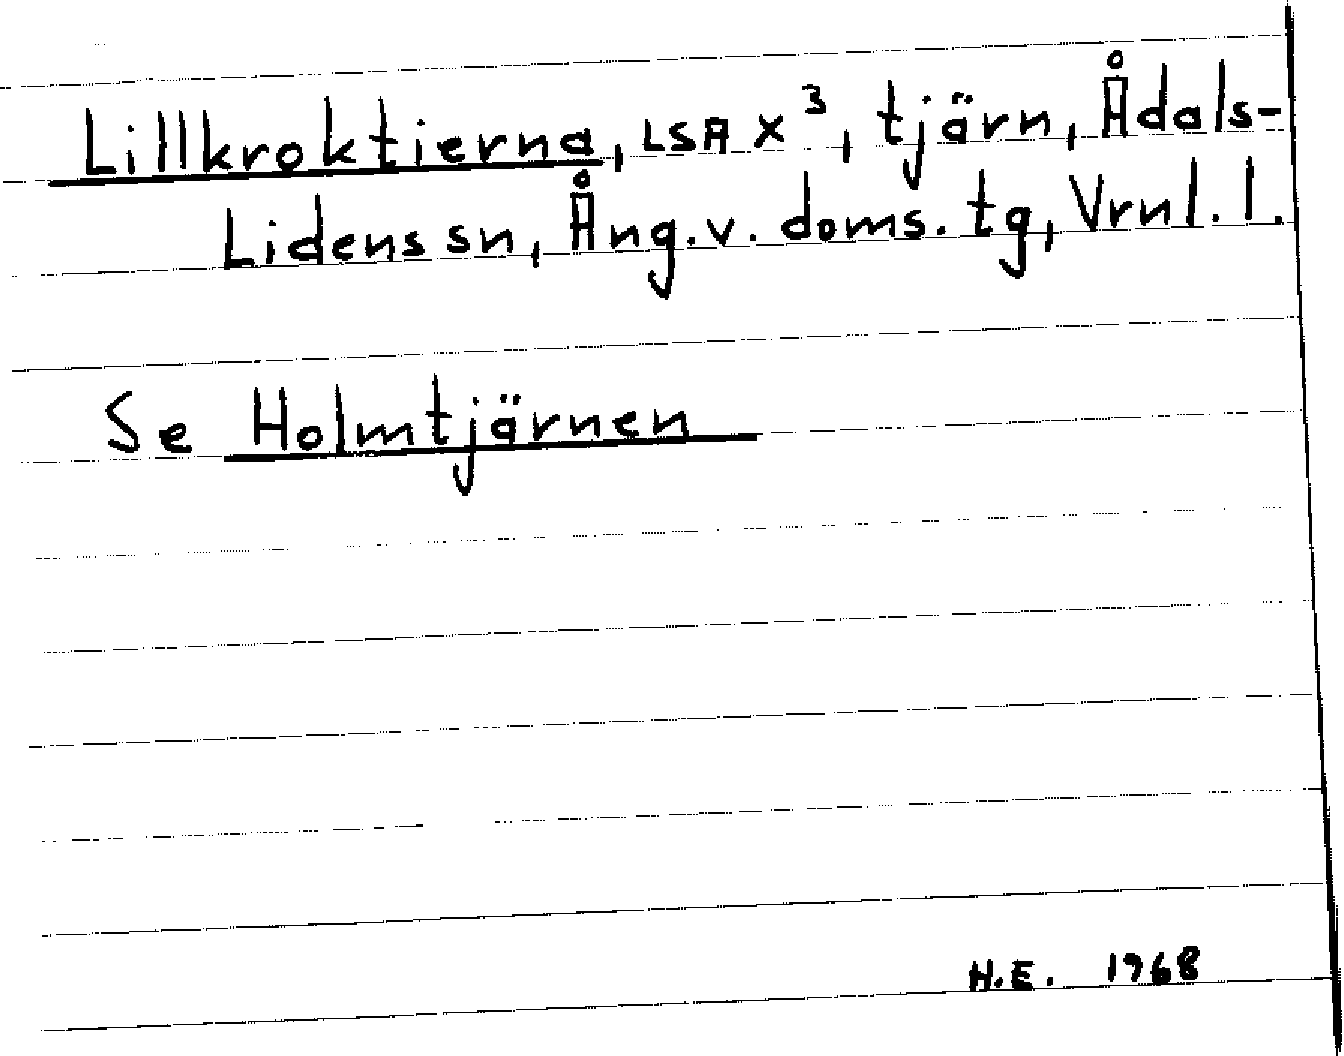 Lillkroktierna, LSA X³, tjärn, Ådals-
Lidens sn, Ång. v. doms. tg, Vrnl. l.
Se Holmtjärnen
H.E. 1968